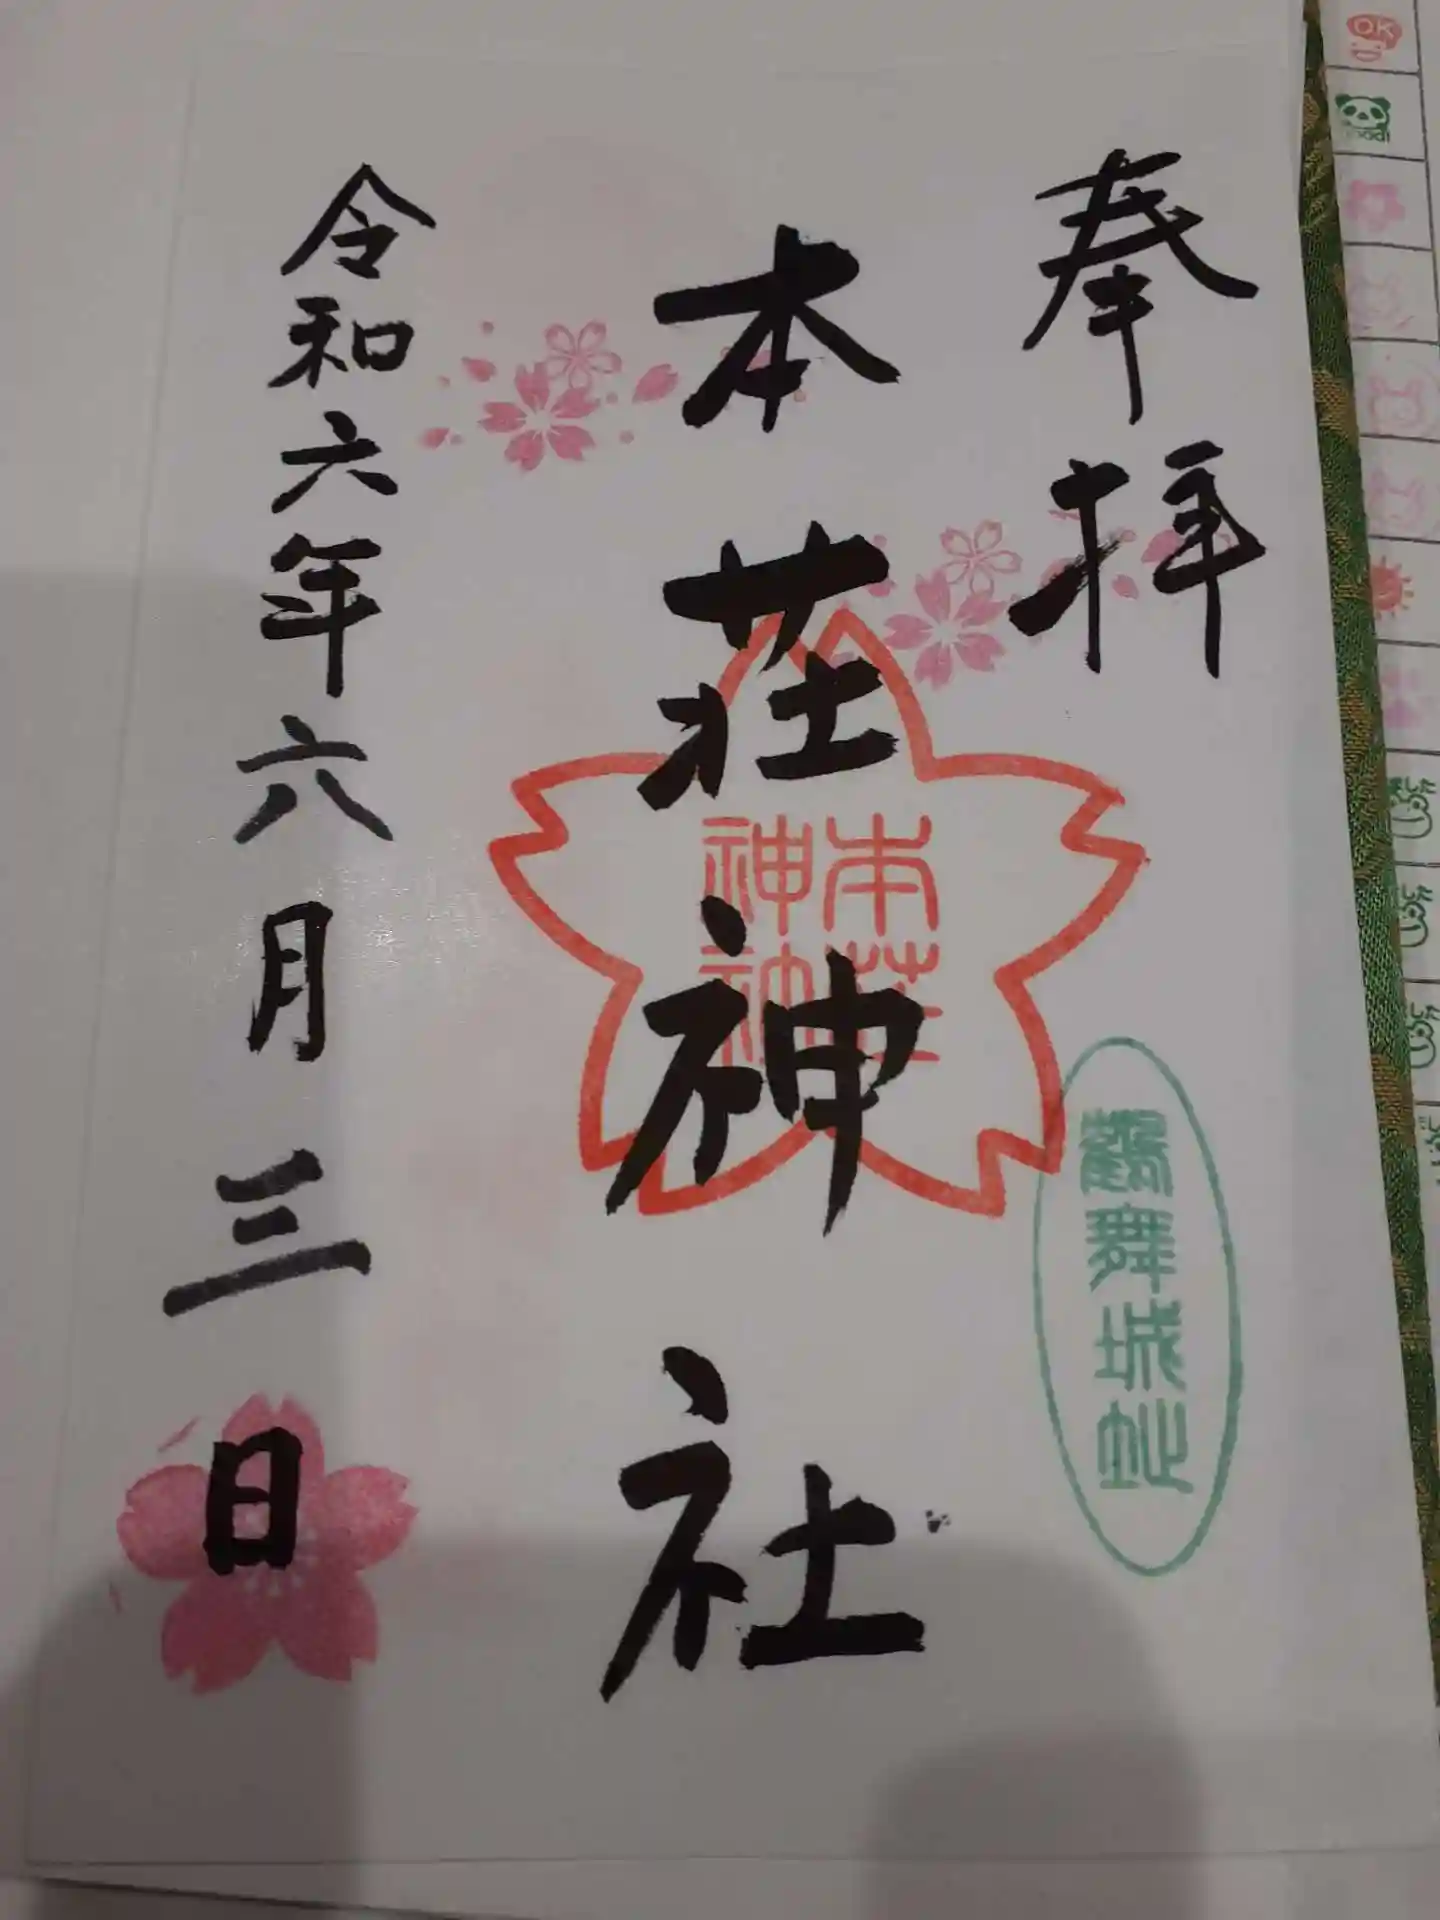 奉拝
鶴舞城址
本荘神社
本荘
神社
令和六年六月三日
OK